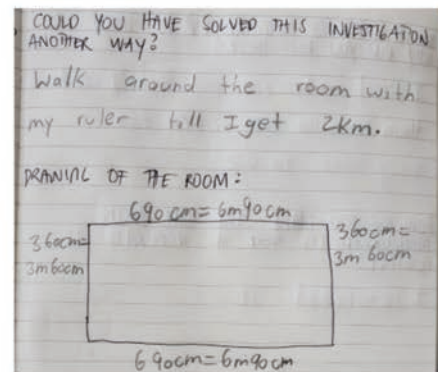 COULD YOU HAVE SOLVED THIS INVESTIGATION
ANOTHER WAY?
Walk around the room with
my ruler till I get 2km.
DRAWING OF THE ROOM:
690 cm = 6m90cm
360cm=
3m60cm
360cm=
3m 60cm
690cm=6m90cm